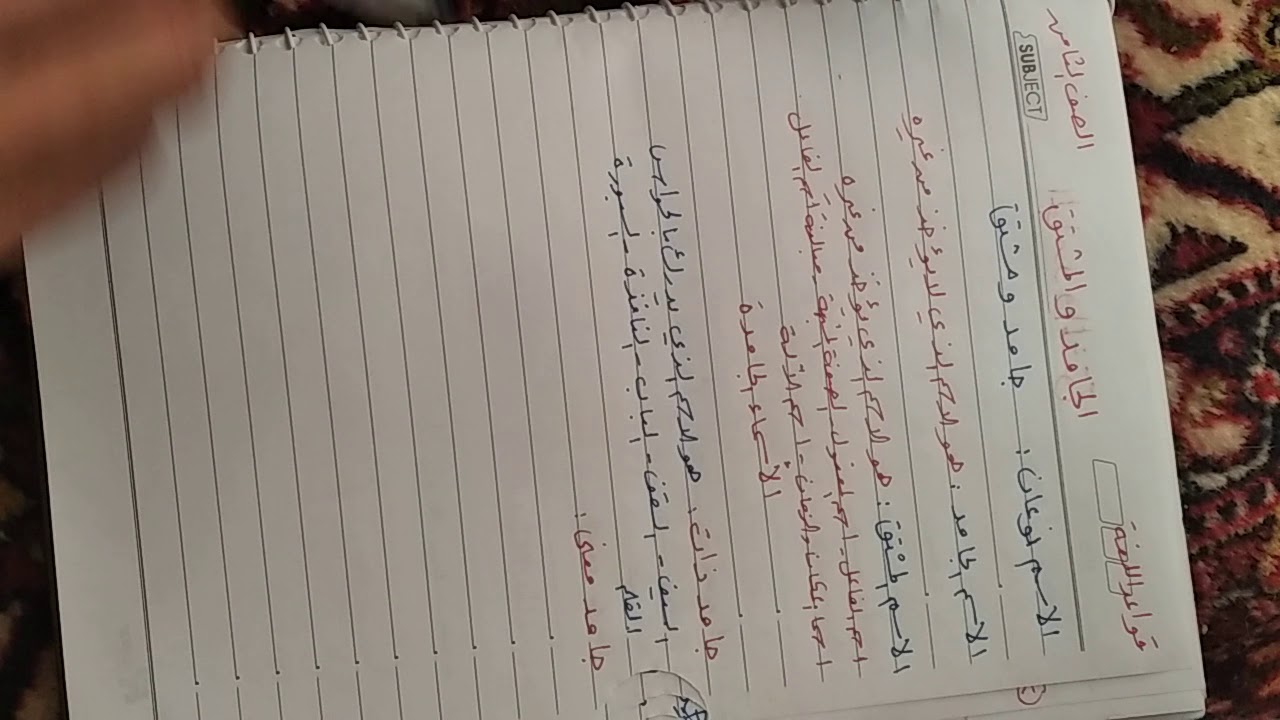 الصف الثامن
قواعد اللغة
SUBJECT
الجامد والمشتق
الاسم نوعان : جامد ومشتق
الاسم الجامد : هو الاسم الذي لا يؤخذ من غيره
الاسم المشتق : هو الاسم الذي يؤخذ من غيره
اسم الفاعل - اسم المفعول - الصفة المشبهة - مبالغة اسم الفاعل
اسما المكان والزمان - اسم الآلة
الأسماء الجامدة
جامد ذات : هو الاسم الذي يدرك بالحواس
السيف - السقف - الباب - النافذة - السبورة
القلم
جامد معنى :